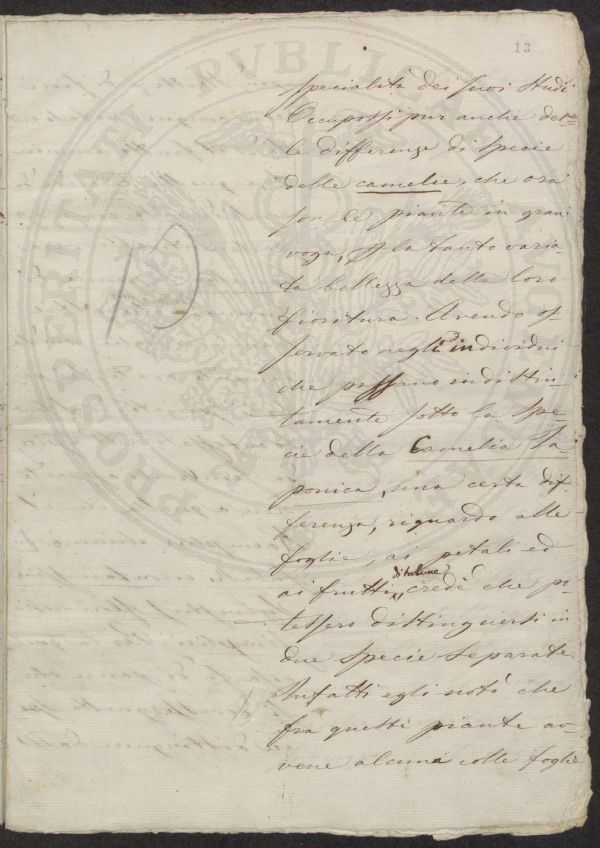 13
specialità dei suoi studi
Occupossi pur anche del=
le differenze di specie
delle camelie, che ora
son le piante in gran
voga, per la tanto varia-
ta bellezza della loro
fioritura. Avendo os-
servato negli individui
che passano indistin-
tamente sotto la spe-
cie della Camelia Ja-
ponica, una certa dif-
ferenza, riguardo alle
foglie, ai petali ed
ai frutti di talune, credè che po-
tessero distinguersi in
due specie separate.
Infatti egli notò che
fra queste piante av-
vene alcune colle foglie
13
PROSPERITATI PUBLICAE